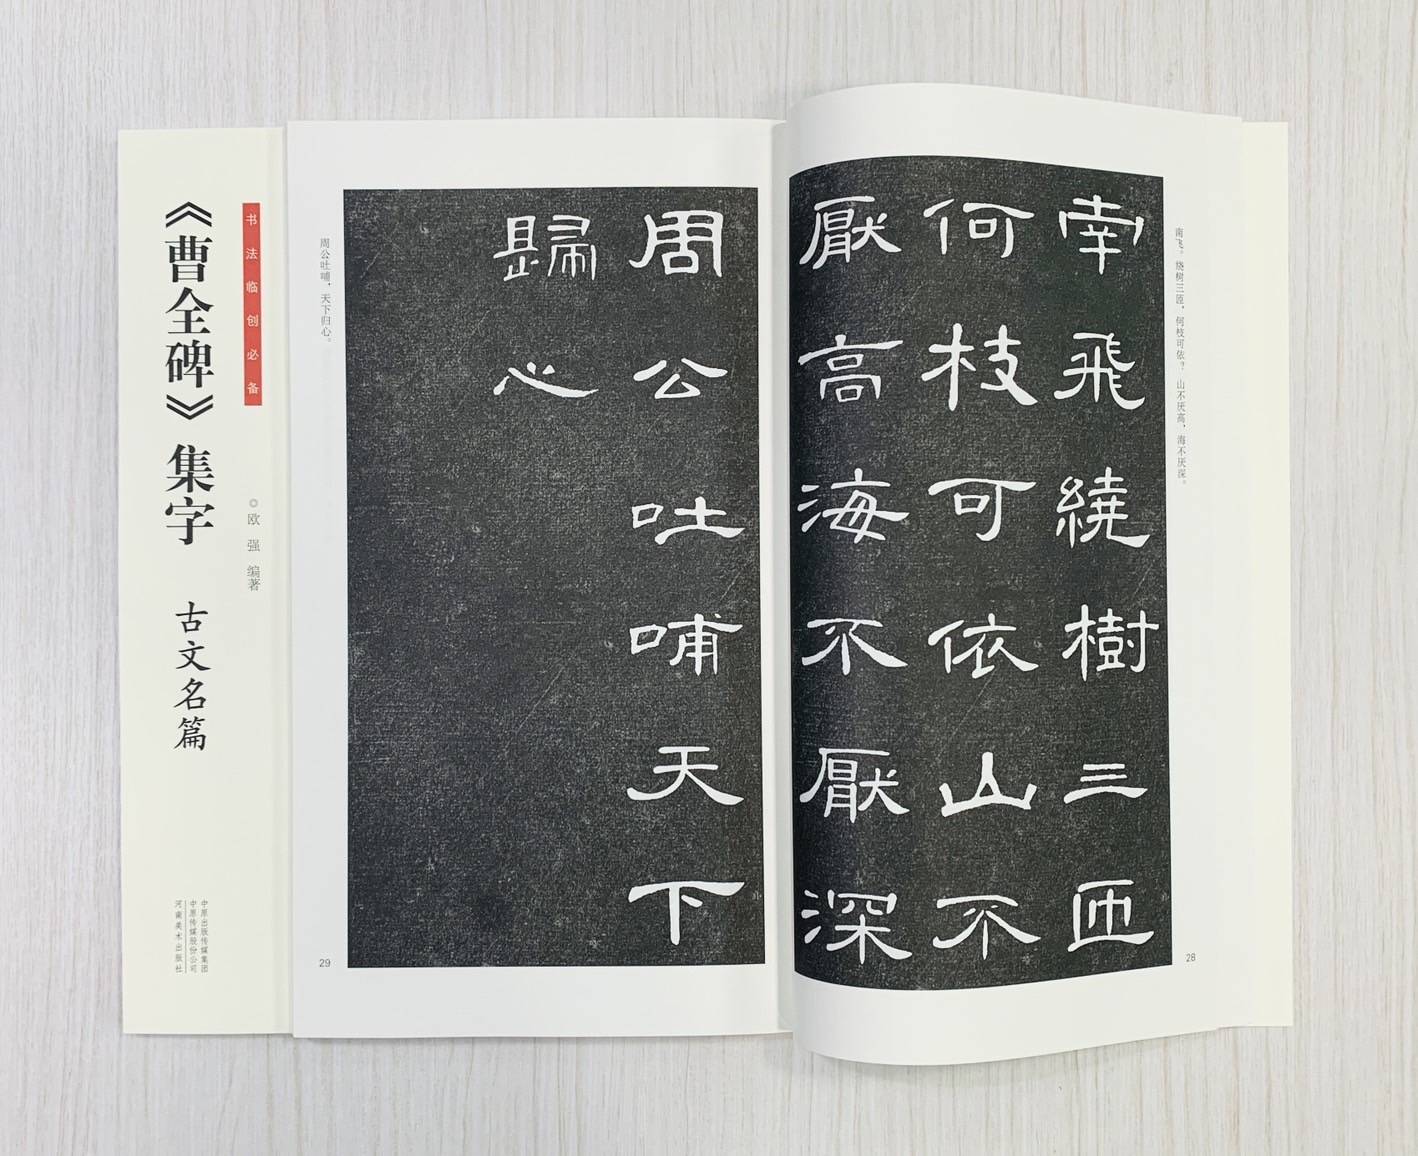 南飛繞樹三匝
何枝可依山不
厭高海不厭深
南飞。绕树三匝，何枝可依？山不厌高，海不厌深。
28
周公吐哺天下
歸心
周公吐哺，天下归心。
29
书法临创必备
◎欧强 编著
《曹全碑》集字
古文名篇
中原出版传媒集团
中原传媒股份公司
河南美术出版社